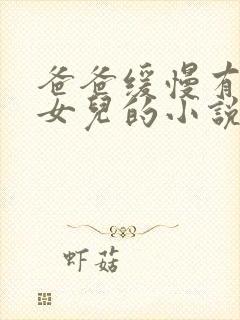 爸爸缓慢有
女兒的小說
虾菇